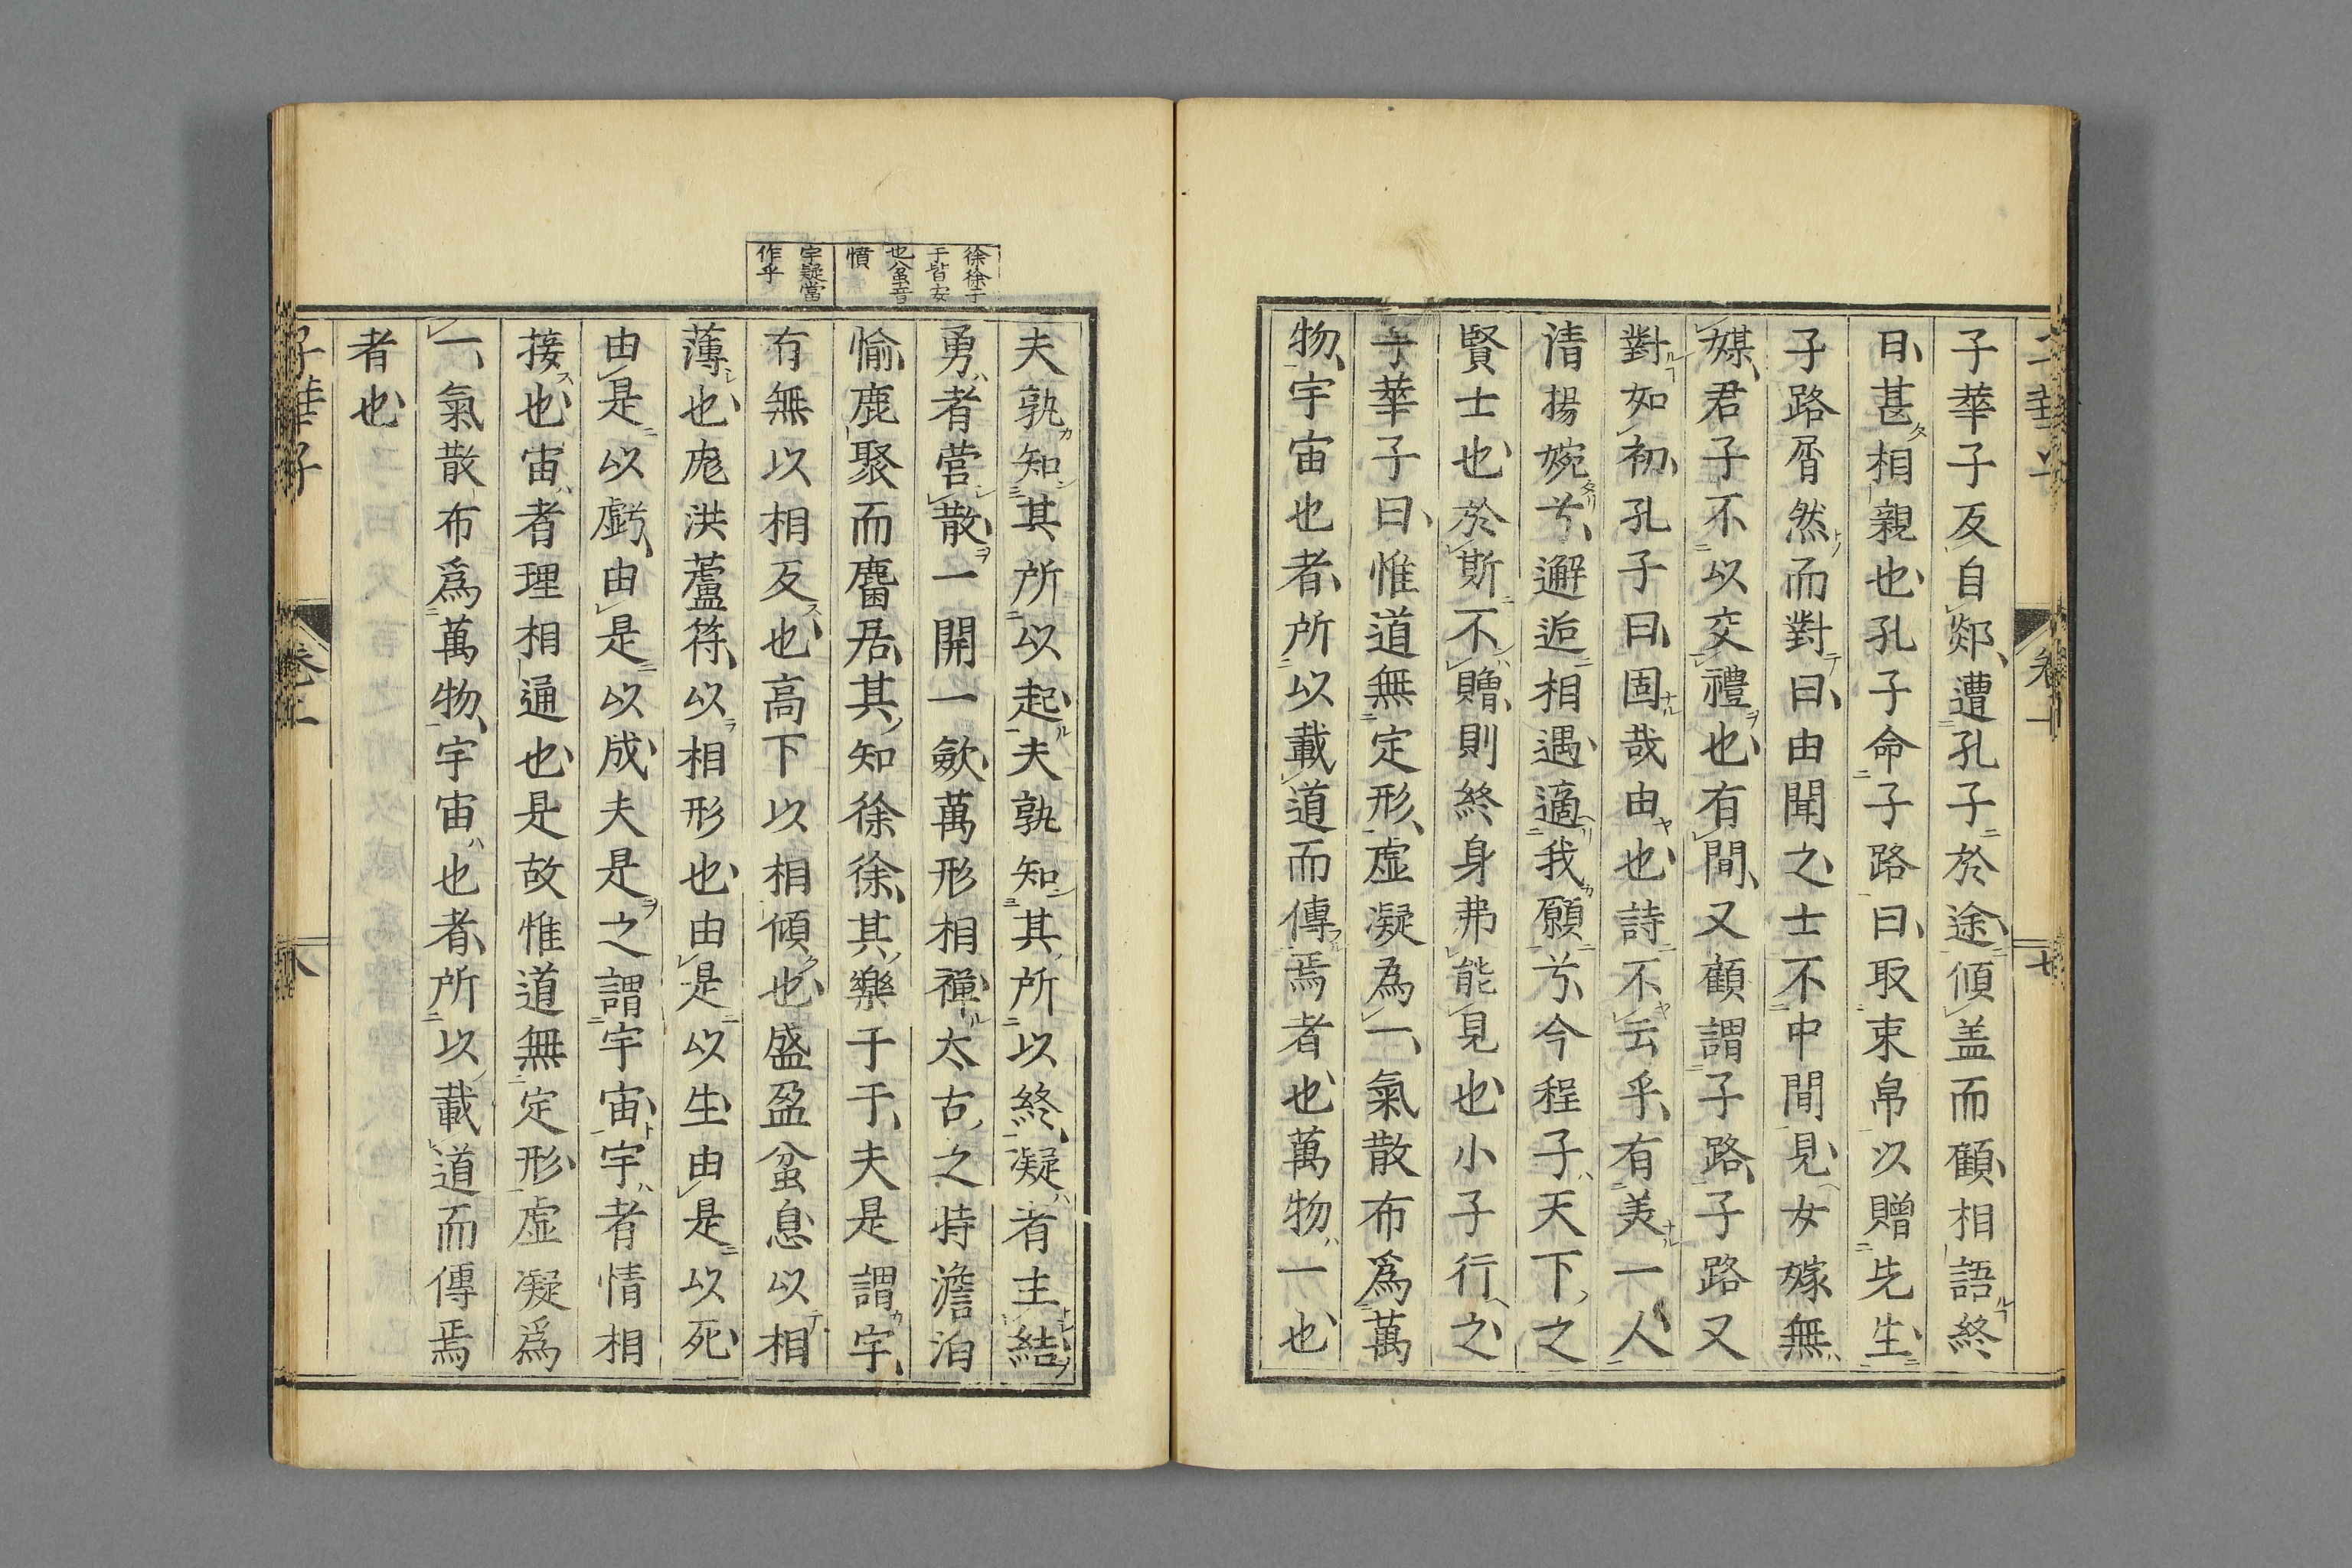 子華子反自郯遭孔子於途傾盖而顧相語終
日甚相親也孔子命子路曰取束帛以贈先生
子路屑然而對曰由聞之士不中間見女嫁無
媒君子不以交禮也有間又顧謂子路子路又
對如初孔子曰固哉由也詩不云乎有美一人
清揚婉兮邂逅相遇適我願兮今程子天下之
賢士也於斯不贈則終身弗能見也小子行之
子華子曰惟道無定形虛凝為一氣散布爲萬
物宇宙也者所以載道而傳焉者也萬物一也
徐徐于
于皆安
也蚠音
憤
宇疑當
作乎
夫孰知其所以起夫孰知其所以終凝者主結
勇者營散一開一歛萬形相禪太古之時澹泊
愉鹿聚而麕居其知徐徐其樂于于夫是謂宇
有無以相反也高下以相傾也盛盈蚠息以相
薄也庬洪蘆符以相形也由是以生由是以死
由是以虧由是以成夫是之謂宇宙宇者情相
接也宙者理相通也是故惟道無定形虛凝爲
一氣散布爲萬物宇宙也者所以載道而傳焉
者也
子華子